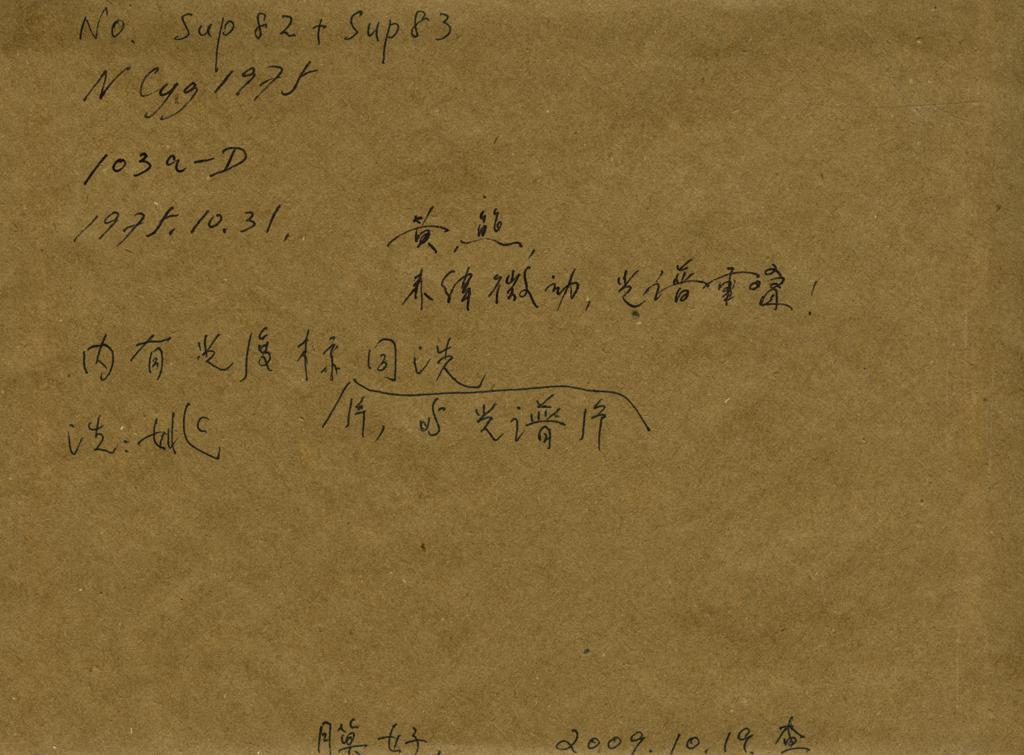 No. Sup 82 + Sup 83
N Cyg 1975
103a-D
1975.10.31.
黄,熊,
未纬微动,光谱重叠!
内有光度标片,与光谱片同洗
洗:姚
膜好. 2009.10.19.查